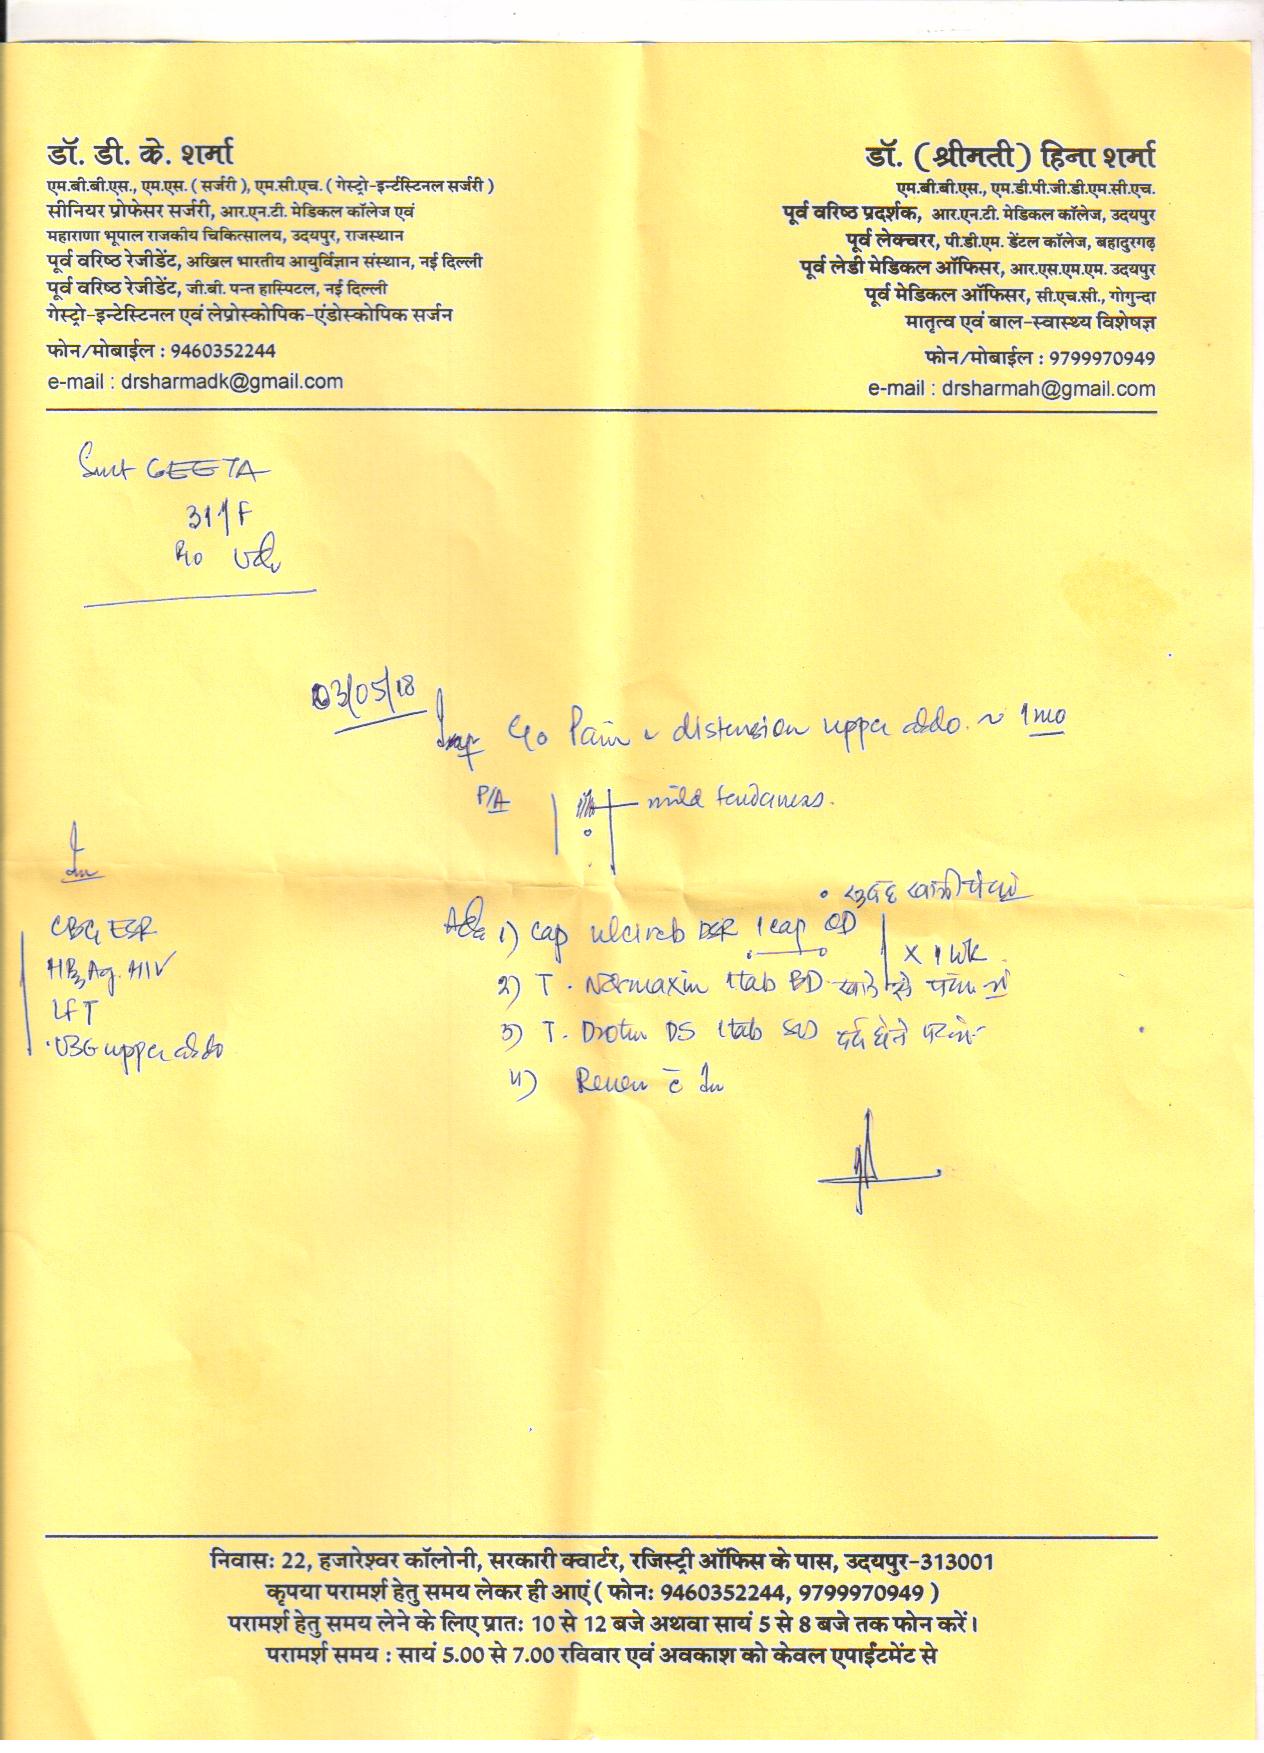 डॉ. डी. के. शर्मा
एम.बी.बी.एस., एम.एस. ( सर्जरी ), एम.सी.एच. ( गेस्ट्रो-इन्टेंस्टिनल सर्जरी )
सीनियर प्रोफेसर सर्जरी, आर.एन.टी. मेडिकल कॉलेज एवं
महाराणा भूपाल राजकीय चिकित्सालय, उदयपुर, राजस्थान
पूर्व वरिष्ठ रेजीडेंट, अखिल भारतीय आयुर्विज्ञान संस्थान, नई दिल्ली
पूर्व वरिष्ठ रेजीडेंट, जी.बी. पन्त हास्पिटल, नई दिल्ली
गेस्ट्रो-इन्टेस्टिनल एवं लेप्रोस्कोपिक-एंडोस्कोपिक सर्जन
फोन/मोबाईल : 9460352244
e-mail : drsharmadk@gmail.com
डॉ. ( श्रीमती ) हिना शर्मा
एम.बी.बी.एस., एम.डी.पी.जी.डी.एम.सी.एच.
पूर्व वरिष्ठ प्रदर्शक, आर.एन.टी. मेडिकल कॉलेज, उदयपुर
पूर्व लेक्चरर, पी.डी.एम. डेंटल कॉलेज, बहादुरगढ़
पूर्व लेडी मेडिकल ऑफिसर, आर.एस.एम.एम. उदयपुर
पूर्व मेडिकल ऑफिसर, सी.एच.सी., गोगुन्दा
मातृत्व एवं बाल-स्वास्थ्य विशेषज्ञ
फोन/मोबाईल : 9799970949
e-mail : drsharmah@gmail.com
Smt GEETA
31y/F
R/o
03/05/18
C/o Pain & distension upper abdo. ~ 1 mo
P/A
mild tenderness.
CBC, ESR
HBsAg, HIV
LFT
USG upper abdo
Adv
1) Cap DSR 1 cap OD
सुबह खाली पेट
x 1 wk
2) T. Normaxin 1 tab BD खाने से
3) T. Drotin DS 1 tab SOS दर्द होने पर
4) Review c Inv
निवासः 22, हजारेश्वर कॉलोनी, सरकारी क्वार्टर, रजिस्ट्री ऑफिस के पास, उदयपुर-313001
कृपया परामर्श हेतु समय लेकर ही आएं ( फोनः 9460352244, 9799970949 )
परामर्श हेतु समय लेने के लिए प्रातः 10 से 12 बजे अथवा सायं 5 से 8 बजे तक फोन करें।
परामर्श समय : सायं 5.00 से 7.00 रविवार एवं अवकाश को केवल एपाईंटमेंट से